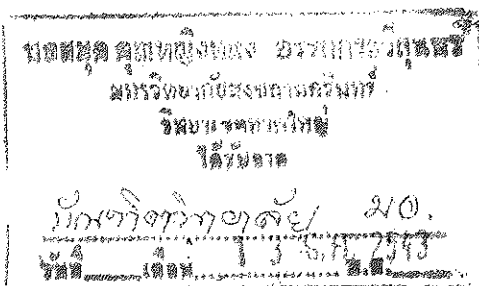 หอสมุด คุณหญิงหลง อรรถกระวีสุนทร
มหาวิทยาลัยสงขลานครินทร์
วิทยาเขตหาดใหญ่
ได้รับจาก
บัณฑิตวิทยาลัย มอ.
วันที่ เดือน 1 3 2543 พ.ศ.